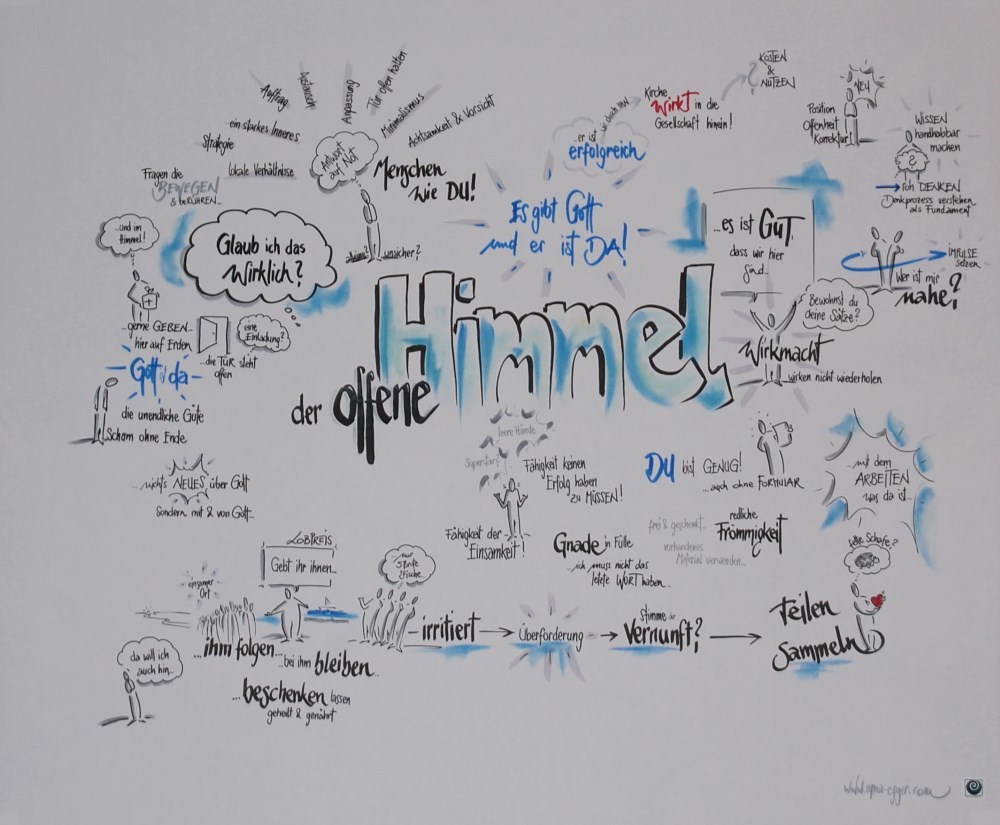 Auftrag
Austausch
Anpassung
Tür offen halten
Minimalismus
Achtsamkeit & Vorsicht
ein starkes Inneres
Strategie
lokale Verhältnisse
Antwort
auf Not
Menschen
wie DU!
unsicher?
Fragen die
BEWEGEN
& berühren...
Glaub ich das
wirklich?
...und im
Himmel!
...gerne GEBEN...
hier auf Erden
...die TÜR steht
offen
eine
Einladung?
Gott da
die unendliche Güte
Scham ohne Ende
...nichts NEUES über Gott
Sondern mit & von Gott...
...er ist
erfolgreich
Kirche
wirkt in die
Gesellschaft hinein!
KOSTEN
&
NUTZEN
Es gibt Gott
und er ist DA!
NEU
Position
Offenheit
Korrektur!
WISSEN
handhabbar
machen
?
DENKEN
Denkprozess verstehen
als Fundament
...es ist GUT,
dass wir hier
sind...
IMPULSE
setzen
Wer ist mir
nahe?
Bewohnst du
deine Sätze?
Wirkmacht
...wirken nicht wiederholen
der offene Himmel
leere Hände
Superstar?
Fähigkeit keinen
Erfolg haben
zu MÜSSEN!
Fähigkeit der
Einsamkeit!
DU bist GENUG!
...auch ohne FORMULAR
...mit dem
ARBEITEN
was da ist...
Gnade in Fülle
...ich muss nicht das
letzte WORT haben...
frei & geschenkt...
vorhandenes
Material verwenden...
redliche
Frömmigkeit
LOBPREIS
Gebt ihr ihnen...
einsamer
Ort
nur
5 Brote
2 Fische
...ihm folgen...
...bei ihm bleiben...
...beschenken lassen
geheilt & genährt
da will ich
auch hin...
irritiert
Überforderung
Stimme der
Vernunft?
Teilen
Sammeln
Schafe?